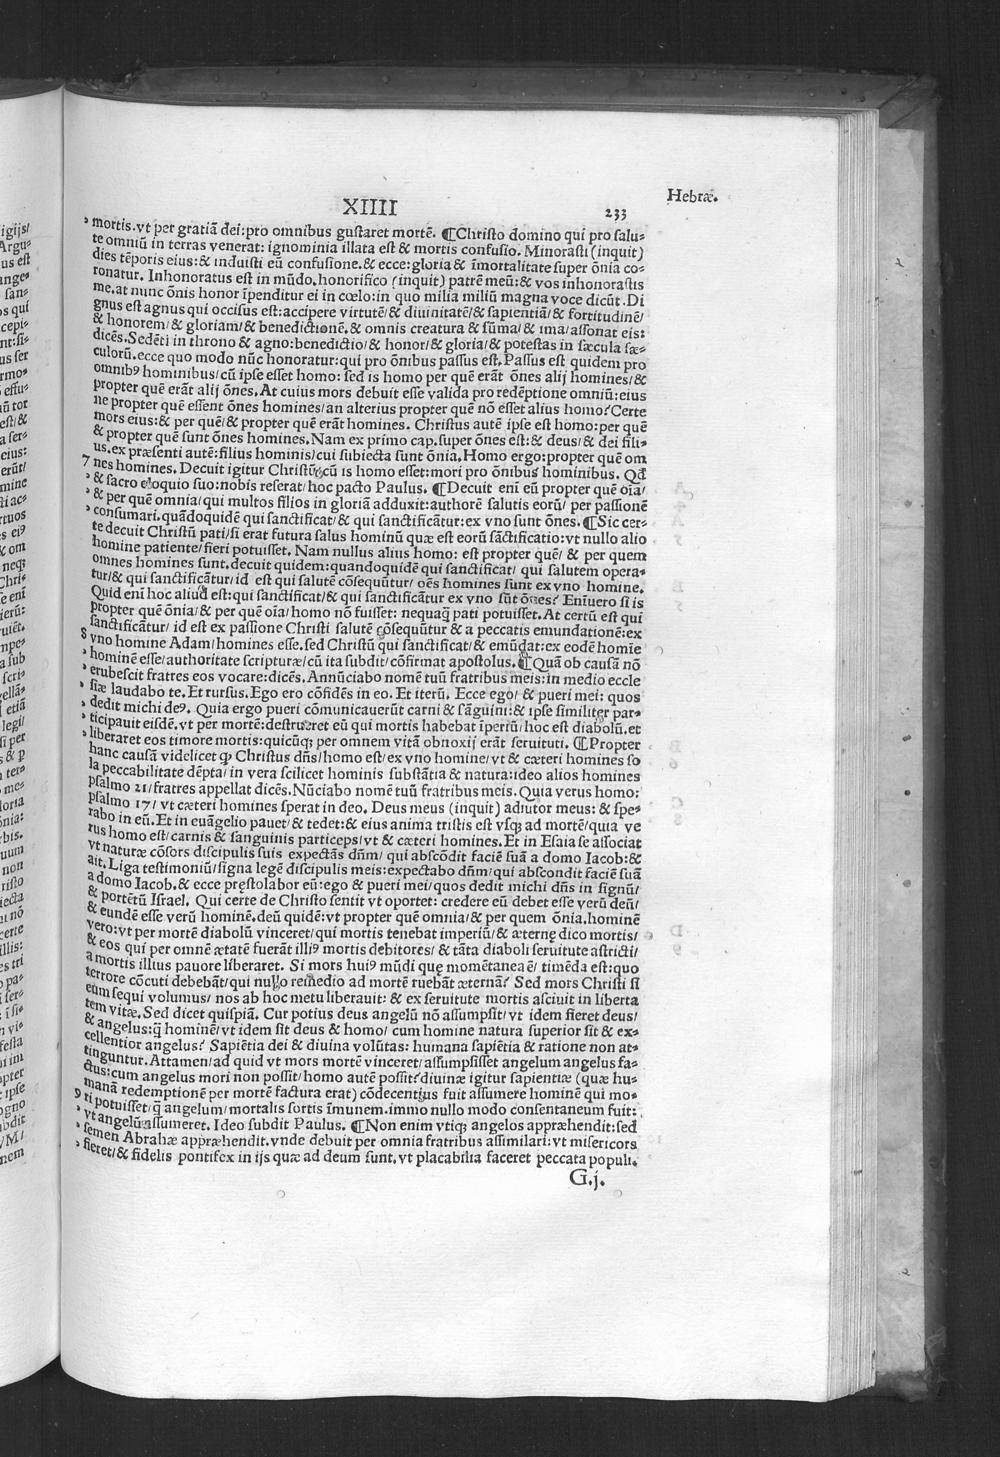 XIIII
233
Hebræ.
mortis.vt per gratiā dei:pro omnibus gustaret mortē. ¶Christo domino qui pro salu-
te omniū in terras venerat: ignominia illata est & mortis confusio. Minorasti (inquit)
dies tēporis eius: & induisti eū confusione.& ecce: gloria & īmortalitate super ōnia co-
ronatur. Inhonoratus est in mūdo.honorifico (inquit) patrē meū:& vos inhonorastis
me.at nunc ōnis honor īpenditur ei in cœlo:in quo milia miliū magna voce dicūt. Di
gnus est agnus qui occisus est:accipere virtutē/ & diuinitatē/ & sapientiā/ & fortitudinē/
& honorem/ & gloriam/ & benedictionē.& omnis creatura & sūma/ & ima/ assonat eis:
dicēs. Sedēti in throno & agno:benedictio/ & honor/ & gloria/ & potestas in sæcula sæ-
culorū.ecce quo modo nūc honoratur: qui pro ōnibus passus est. Passus est quidem pro
omnibꝰ hominibus/ cū ipse esset homo: sed is homo per quē erāt ōnes alij homines/ &
propter quē erāt alij ōnes. At cuius mors debuit esse valida pro redēptione omniū: eius
ne propter quē essent ōnes homines/ an alterius propter quē nō esset alius homo? Certe
mors eius: & per quē/ & propter quē erāt homines. Christus autē ipse est homo: per quē
& propter quē sunt ōnes homines. Nam ex primo cap. super ōnes est: & deus/ & dei fili-
us.ex præsenti autē: filius hominis/ cui subiecta sunt ōnia. Homo ergo: propter quē om
7 nes homines. Decuit igitur Christū/ cū is homo esset: mori pro ōnibus hominibus. Qđ
& sacro eloquio suo: nobis reserat/ hoc pacto Paulus. ¶Decuit enī eū propter quē oīa/
& per quē omnia/ qui multos filios in gloriā adduxit: authorē salutis eorū/ per passionē
consumari. quādoquidē qui sanctificat/ & qui sanctificātur: ex vno sunt ōnes. ¶Sic cer-
te decuit Christū pati/ si erat futura salus hominū quæ est eorū sāctificatio: vt nullo alio
homine patiente/ fieri potuisset. Nam nullus alius homo: est propter quē/ & per quem
omnes homines sunt.decuit quidem: quandoquidē qui sanctificat/ qui salutem opera-
tur/ & qui sanctificātur/ id est qui salutē cōsequūtur/ oēs homines sunt ex vno homine.
Quid enī hoc aliud est: qui sanctificat/ & qui sanctificātur ex vno sūt ōnes? Enīuero si is
propter quē ōnia/ & per quē oīa/ homo nō fuisset: nequaq̄ pati potuisset. At certū est qui
sanctificātur/ id est ex passione Christi salutē cōsequūtur & a peccatis emundationē: ex
8 vno homine Adam/ homines esse. sed Christū qui sanctificat/ & emūdat: ex eodē homīe
hominē esse/ authoritate scripturæ/ cū ita subdit/ cōfirmat apostolus. ¶Quā ob causā nō
erubescit fratres eos vocare: dicēs. Annūciabo nomē tuū fratribus meis: in medio eccle
siæ laudabo te. Et rursus. Ego ero cōfidēs in eo. Et iterū. Ecce ego/ & pueri mei: quos
dedit michi deꝰ. Quia ergo pueri cōmunicauerūt carni & sāguini: & ipse similiter par-
ticipauit eisdē.vt per mortē: destrueret eū qui mortis habebat īperiū/ hoc est diabolū.et
liberaret eos timore mortis: quicūqꝫ per omnem vitā obnoxij erāt seruituti. ¶Propter
hanc causā videlicet ꝙ Christus dn̄s/ homo est/ ex vno homine/ vt & cæteri homines so
la peccabilitate dēpta/ in vera scilicet hominis substātia & natura: ideo alios homines
psalmo 21/ fratres appellat dicēs. Nūciabo nomē tuū fratribus meis. Quia verus homo:
psalmo 17/ vt cæteri homines sperat in deo. Deus meus (inquit) adiutor meus: & spe-
rabo in eū. Et in euāgelio pauet/ & tedet: & eius anima tristis est vsqꝫ ad mortē/ quia ve
rus homo est/ carnis & sanguinis particeps/ vt & cæteri homines. Et in Esaia se associat
vt naturæ cōsors discipulis suis expectās dn̄m/ qui abscōdit faciē suā a domo Iacob: &
ait. Liga testimoniū/ signa legē discipulis meis: expectabo dn̄m/ qui abscondit faciē suā
a domo Iacob. & ecce pręstolabor eū: ego & pueri mei/ quos dedit michi dn̄s in signū/
& portētū Israel. Qui certe de Christo sentit vt oportet: credere eū debet esse verū deū/
& eundē esse verū hominē.deū quidē: vt propter quē omnia/ & per quem ōnia.hominē
vero: vt per mortē diabolū vinceret/ qui mortis tenebat imperiū/ & æternę dico mortis/
& eos qui per omnē ætatē fuerāt illiꝰ mortis debitores/ & tāta diaboli seruitute astricti/
a mortis illius pauore liberaret. Si mors huiꝰ mūdi quę momētanea ē/ timēda est: quo
terrore cōcuti debebāt/ qui nullo remedio ad mortē ruebāt æternā? Sed mors Christi si
eum sequi volumus/ nos ab hoc metu liberauit: & ex seruitute mortis asciuit in liberta
tem vitæ. Sed dicet quispiā. Cur potius deus angelū nō assumpsit/ vt idem fieret deus/
& angelus: q̄ hominē/ vt idem sit deus & homo/ cum homine natura superior sit & ex-
cellentior angelus? Sapiētia dei & diuina volūtas: humana sapiētia & ratione non at-
tinguntur. Attamen/ ad quid vt mors mortē vinceret/ assumpsisset angelum angelus fa-
ctus: cum angelus mori non possit/ homo autē possit? diuinæ igitur sapientiæ (quæ hu-
manā redemptionē per mortē factura erat) cōdecentius fuit assumere hominē qui mo-
9 ri potuisset/ q̄ angelum/ mortalis sortis īmunem.immo nullo modo consentaneum fuit:
vt angelū assumeret. Ideo subdit Paulus. ¶Non enim vtiqꝫ angelos appræhendit: sed
semen Abrahæ appræhendit.vnde debuit per omnia fratribus assimilari: vt misericors
fieret/ & fidelis pontifex in ijs quæ ad deum sunt, vt placabilia faceret peccata populi.
G.j.